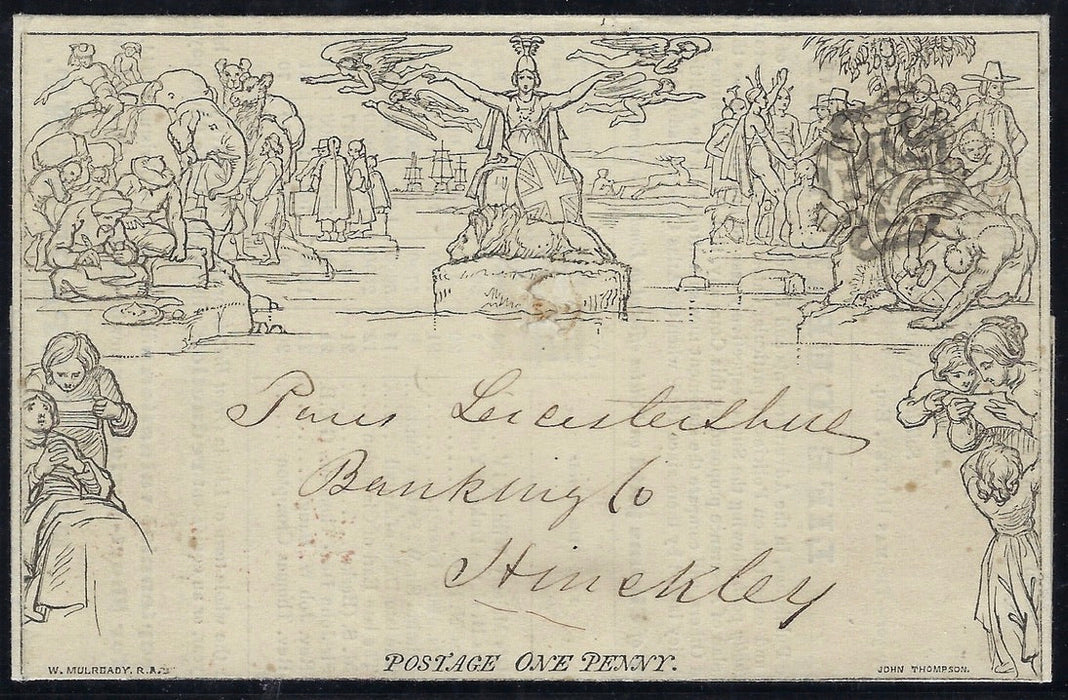 Pares Leicestershire
Banking Co
Hinckley
POSTAGE ONE PENNY.
W. MULREADY. R.A.
JOHN THOMPSON.